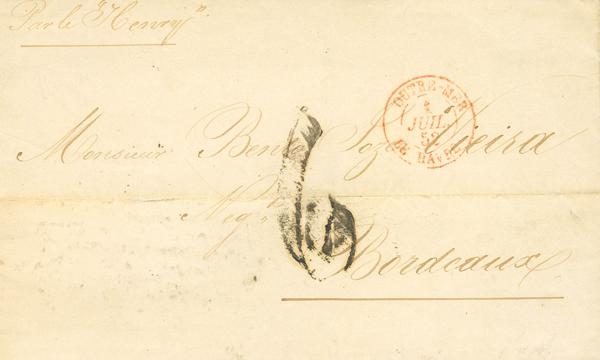 Par le "Henry".
OUTRE-MER
JUIL.
52
LE HAVRE
Monsieur Bento Joze Vieira
Negt
6
Bordeaux